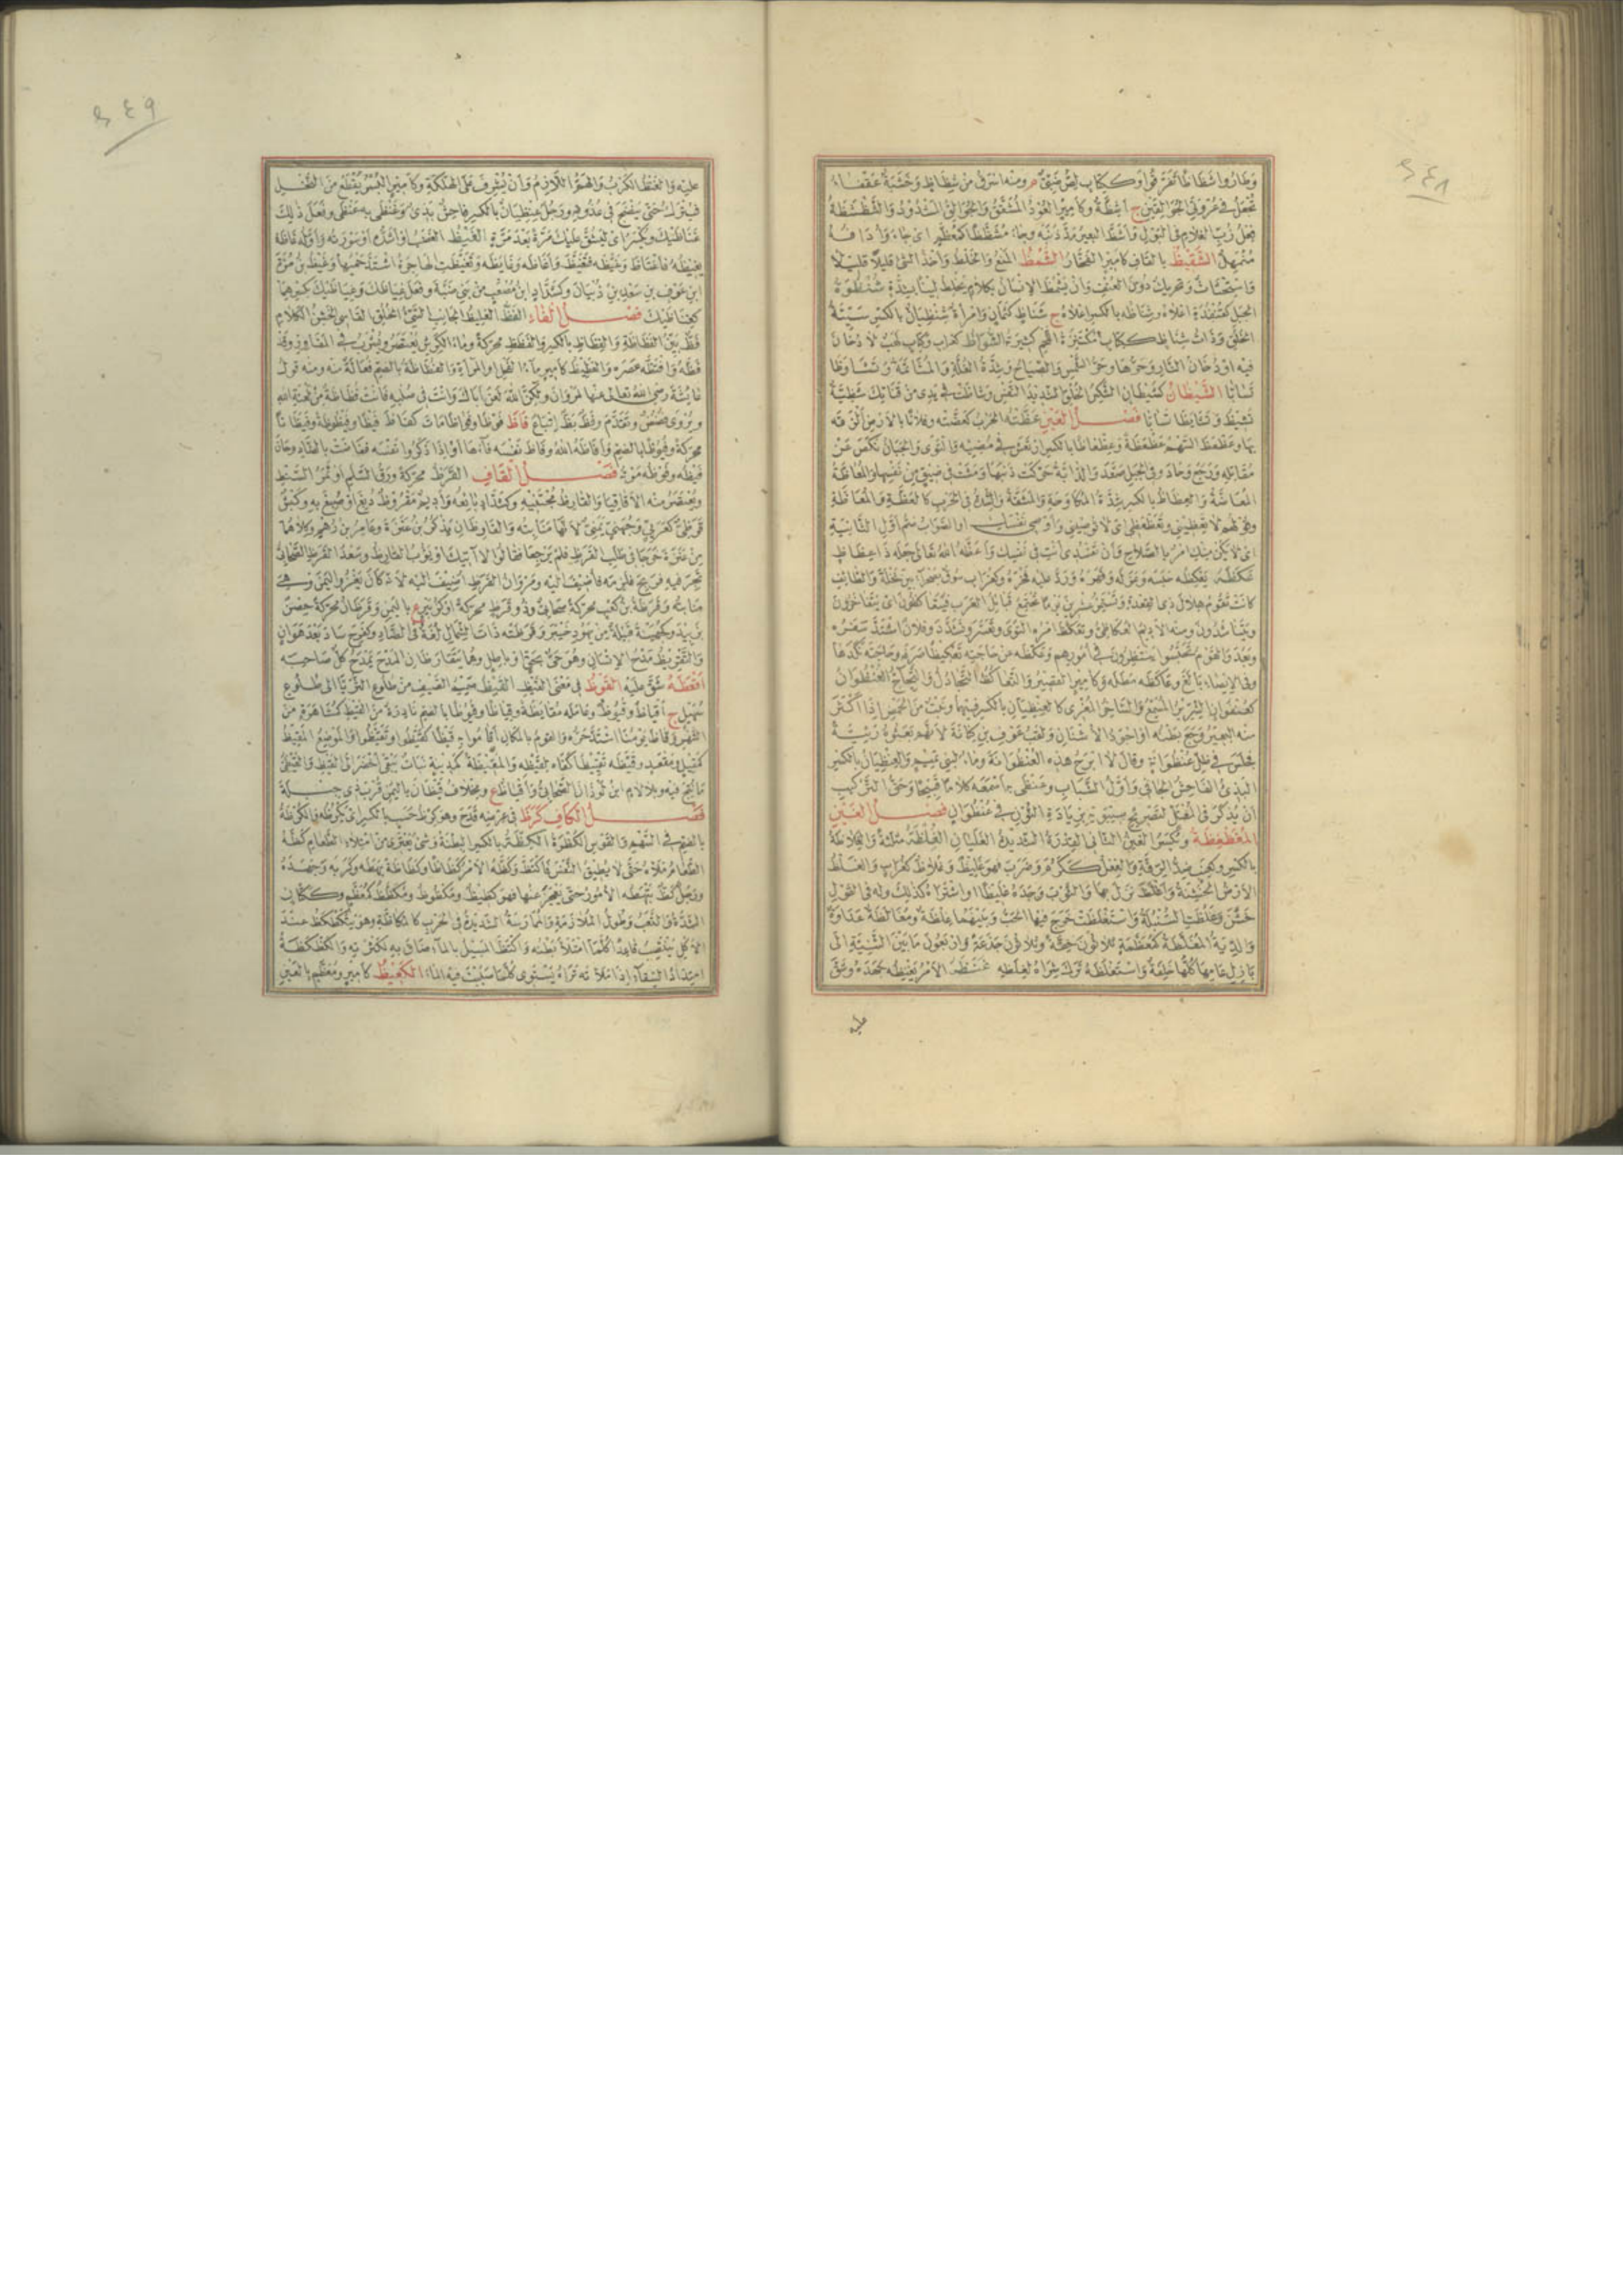 وطاروا شظاظا تفرقوا وككتاب لص ضبي م ومنه اسرق من شظاظ وخشبة عقفاء
تجعل في عروتي الجوالقين ج أشظة وكأمير العود المشقق والجوالق المشدود والشظشظة
فعل زب الغلام في البول وأشظ البعير مد ذنبه وجاء مشظظا كمعظم اي جاء وأداف
متمهل الشقيظ بالقاف كأمير الفخار الشمظ المنع والخلط وأخذ الشيء قليلا قليلا
واستحثاث وتحريك دون العنف وان يشمظ الإنسان بكلام يخلط لينا بشدة شنظوة
الجبل كقنفذة اعلاه وشناظه بالكسر اعلاه ج شناظ كثمان وامرأة شنظيان بالكسر سيئة
الخلق وذات شناظ ككتاب مكتنزة اللحم كثيرته الشواظ كغراب وكتاب لهب لا دخان
فيه او دخان النار وحرها وحر الشمس والصياح وشدة الغلة والمشاتمة وتشاوظا
تسابا الشيظان كشيطان الشكس الخلق الشديد النفس وشاظت في يدي من قناتك شظية
تشيظ وتشايظا تسابا فصل العين عظته الحرب كعضته وفلانا بالارض الزقه
بها وعظعظ السهم عظعظة وعظعاظا بالكسر ارتعش في مضيه والتوى والجبان نكص عن
مقاتله ورجع وحاد وفي الجبل صعد والدابة حركت ذنبها ومشت في ضيق من نفسها والمعاظة
المعاضة والعظاظ بالكسر شدة المكاوحة والمشقة والشدة في الحرب كالعظة والمعاظة
وقولهم لا تعظيني وتعظعظي اي لا توصيني وأوصي نفسك او الصواب ضم اول الثانية
اي لا يكن منك امر بالصلاح وان تفسدي انت في نفسك وأعظه الله تعالى جعله ذا عظاظ
عكظه يعكظه حبسه وعركه وقهره ورد عليه فخره وكغراب سوق بصحراء بين نخلة والطائف
كانت تقوم هلال ذي القعدة وتستمر عشرين يوما تجتمع قبائل العرب فيتعاكظون اي يتفاخرون
ويتناشدون ومنه الاديم العكاظي وتعكظ امره التوى وتعسر وتشدد وفلان اشتد سفره
وبعد والقوم تحبسوا ينتظرون في امورهم وعكظه عن حاجته تعكيظا صرفه وحاجته نكدها
وفي الإيصاء بالغ وعاكظه مطله وكأمير القصير والتعاكظ التجادل والتحاج العنظوان
كعنفوان الشرير المسمع والساخر المغري كالعنظيان بالكسر فيهما ونبت من الحمض اذا اكثر
منه البعير وجع بطنه او اجود الاشنان ولقب عوف بن كنانة لأنهم بعثوه ربيئة
فجلس في ظل عنظوانة وقال لا ابرح هذه العنظوانة وماء لبني تميم والعنظيان بالكسر
البذي الفاحش الجافي وأول الشباب وعنظى به اسمعه كلاما قبيحا وحق التركيب
ان يذكر في المعتل لتصريح سيبويه بزيادة النون في عنظوان فصل الغين
المغطغظة وتكسر الغين الثاني القدر الشديدة الغليان الغلظة مثلثة والغلاظة
بالكسر وكعنب ضد الرقة والفعل ككرم وضرب فهو غليظ وغلاظ كغراب والغلظ
الارض الخشنة وأغلظ نزل بها والثوب وجده غليظا او اشتراه كذلك وله في القول
خشن وغلظت السنبلة واستغلظت خرج فيها الحب وبينهما غلظة ومغالظة عداوة
والدية المغلظة كمعظمة ثلاثون حقة وثلاثون جذعة واربعون ما بين الثنية الى
بازل عامها كلها خلفة واستغلظه ترك شراه لغلظه غنظه الامر يغنظه جهده وشق
عليه
عليه والغنظ الكرب والهم اللازم وأن يشرف على الهلكة وكأمير البسر يقطع من النخل
فيترك حتى ينضج في عذوقه ورجل غنظيان بالكسر فاحش بذيء وغنظى به عنظى وفعل ذلك
غناظيك ويكسر اي ليشق عليك مرة بعد مرة الغيظ الغضب او اشده او سورته وأوله غاظه
يغيظه فاغتاظ وغيظه فتغيظ وأغاظه وغايظه وتغيظت الهاجرة اشتد حميها وغيظ بن مرة
ابن عوف بن سعد بن ذبيان وكشداد ابن مصعب من بني ضبة وفعل غياظك وغياظيك كسرهما
كغناظيك فصل الفاء الفظ الغليظ الجانب السيئ الخلق القاسي الخشن الكلام
فظ بين الفظاظة والفظاظ بالكسر والفظظ محركة وماء الكرش يعتصر ويشرب في المفاوز وقد
فظه وافتظه عصره والفظيظ كأمير ماء الفحل او المرأة والفظاظة بالضم فعالة منه ومنه قول
عائشة رضي الله تعالى عنها لمروان ولكن الله لعن اباك وانت في صلبه فأنت فظاظة من لعنة الله
ويروى فضض وتقدم وفظ بظ إتباع فاظ فوظا وفواظا مات كفاظ فيظا وفيظوظة وفيظانا
محركة وفيوظا بالضم وأفاظه الله وفاظ نفسه قاءها او اذا ذكروا نفسه ففاضت بالضاد وحان
فيظه وفوظه موته فصل القاف القرظ محركة ورق السلم او ثمر السنط
ويعتصر منه الاقاقيا والقارظ مجتنيه وكشداد بائعه وأديم مقروظ دبغ او صبغ به وكبش
قرظي كعربي وجهني يمني لانها منابته والقارظان يذكر بن عنزة وعامر بن رهم وكلاهما
من عنزة خرجا في طلب القرظ فلم يرجعا فقالوا لا آتيك او يؤوب القارظ وسعد القرظ الصحابي
تجر فيه فربح فلزمه فأضيف اليه ومروان القرظ اضيف اليه لأنه كان يغزو اليمن وهي
منابته وقرظة بن كعب محركة صحابي وذو قرظ محركة او كزبير ع باليمن وقرظان محركة حصن
بزبيد وكجهينة قبيلة من يهود خيبر وقرظته ذات الشمال لغة في الضاد وكفرح ساد بعد هوان
والتقريظ مدح الإنسان وهو حي بحق او باطل وهما يتقارظان المدح يمدح كل صاحبه
أقعظه شق عليه القوظ في معنى القيظ القيظ صميم الصيف من طلوع الثريا الى طلوع
سهيل ج أقياظ وقيوظ وعامله مقايظة وقياظا وقيوظا بالضم نادرة من القيظ كمشاهرة من
الشهر وقاظ يومنا اشتد حره والقوم بالمكان أقاموا به قيظا كقيظوا وتقيظوا والموضع المقيظ
كمقيل ومقعد وقيظه تقييظا كفاه لقيظه والمقيظة كمدينة نبات يبقى اخضر الى القيظ والقيظي
ما نتج فيه وبلا لام ابن لوذان الصحابي وأقياظ ع ومخلاف قيظان باليمن قرب ذي جبلة
فصل الكاف كرظ في عرضه قدح وهو كرظ حسب بالكسر اي يكرظه والكرظة
بالضم في السهم والقوس الكظرة الكظة بالكسر البطنة وشيء يعتري من امتلاء الطعام كظه
الطعام ملأه حتى لا يطيق النفس فاكتظ وكظه الامر كظاظا وكظاظة بهظه وكربه وجهده
ورجل كظ تبهظه الامور حتى يعجز عنها فهو كظيظ ومكظوظ ومكظظ كمعظم وككتاب
الشدة والتعب وطول الملازمة والممارسة الشديدة في الحرب كالمكاظة وهو يتكظكظ عند
الاكل ينتصب قاعدا كلما امتلأ بطنه واكتظ المسيل بالماء ضاق به لكثرته والكظكظة
امتداد السقاء اذا ملأته تراه يستوي كلما صببت فيه الماء الكعيظ كأمير ومعظم بالعين